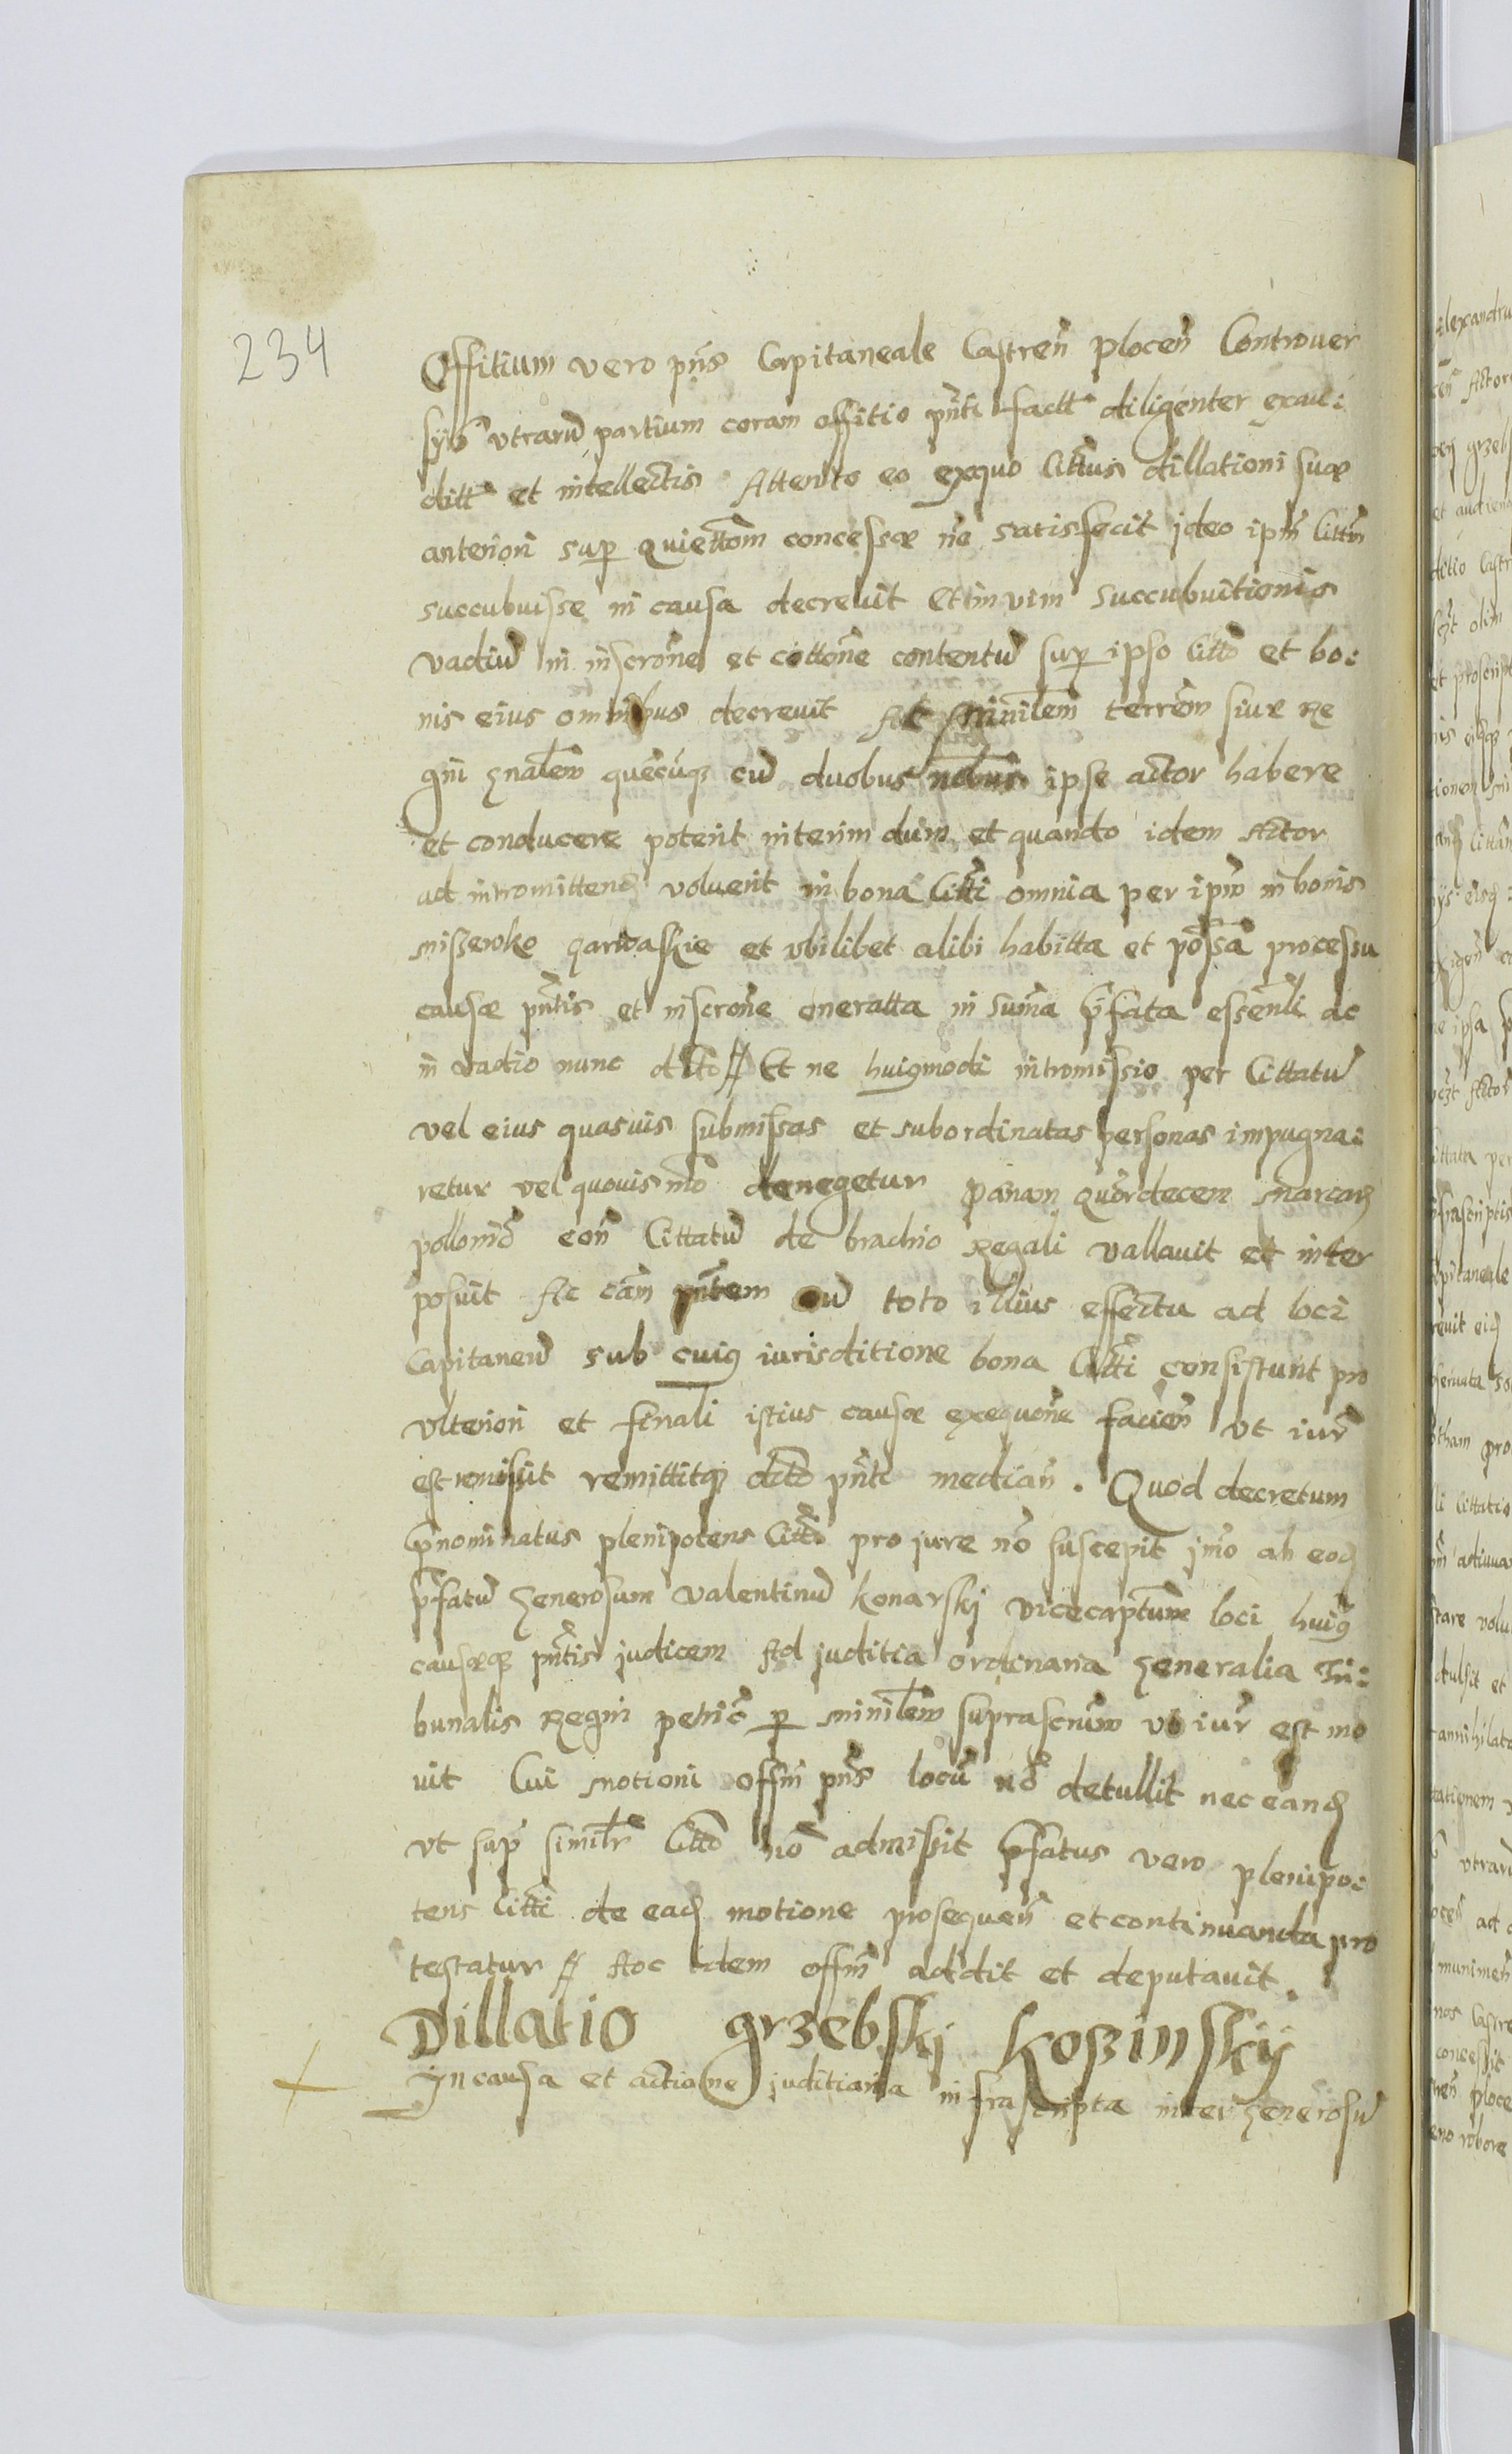 234
Offitium vero pñs Capitaneale Castreñ ploceñ Controuer
syis utrarũ partium coram offitio pñti factt diligenter exau:
ditt et intellectis Attento eo exquo Cittus dillationi suæ
anteriori sup quiettõm concessæ ñe satisfecit ideo ipm Cittm
succubuisse in causa decreuit et in vim succubuitionis
vadiũ in inscrõne et cittõne contentũ sup ipso Citto et bo:
nis eius omnibus decreuit Ac minilem terrēm siue Re
gni gnalem quecũq cũ duobus nobus ipse actor habere
et conducere poterit interim dum et quando idem Actor
ad intromittend voluerit in bona Citti omnia per ipm in bonis
miszewko garwaskie et vbilibet alibi habitta et põssa processu
causæ pñtis et inscrõne oneratta in suma pfata essenli ac
in vadio nunc dicto Et ne huigmodi intromissio per Cittatũ
vel eius quasuis submissas et subordinatas personas impugna:
retur vel quouis mõ denegetur pænam quõrdecem marcar
pollonic eoñ Cittatũ de brachio Regali vallauit et inter
posuit Ac cãm pñtem cũ toto illius effectu ad loci
Capitaneũ sub cuig iurisditione bona Citti consistunt pro
vlteriori et finali istius causæ exequõne facieñ vt iur
est remisit remittitq dcto pñti mediañ. Quod decretum
pnominatus plenipotens Citti pro jure nõ suscepit jmo ab eod
pfatũ generosum Valentinũ Konarskj vicecaptum loci huig
causæq pñtis judicem Ad juditia ordinaria generalia Tri:
bunalis Regni petric p minilem suprascrim vt iur est mo
uit Cui motioni offm pñs locũ nõ detullit nec eand
vt sup similr Citto nõ admissit pfatus vero plenipo:
tens Citti de ead motione prosequeñ et continuanda pro
testatur Hoc idem offm addit et deputauit.
Dillatio grzebskj Koszinskij
Yn causa et actione juditiaria infrascripta inter generosũ